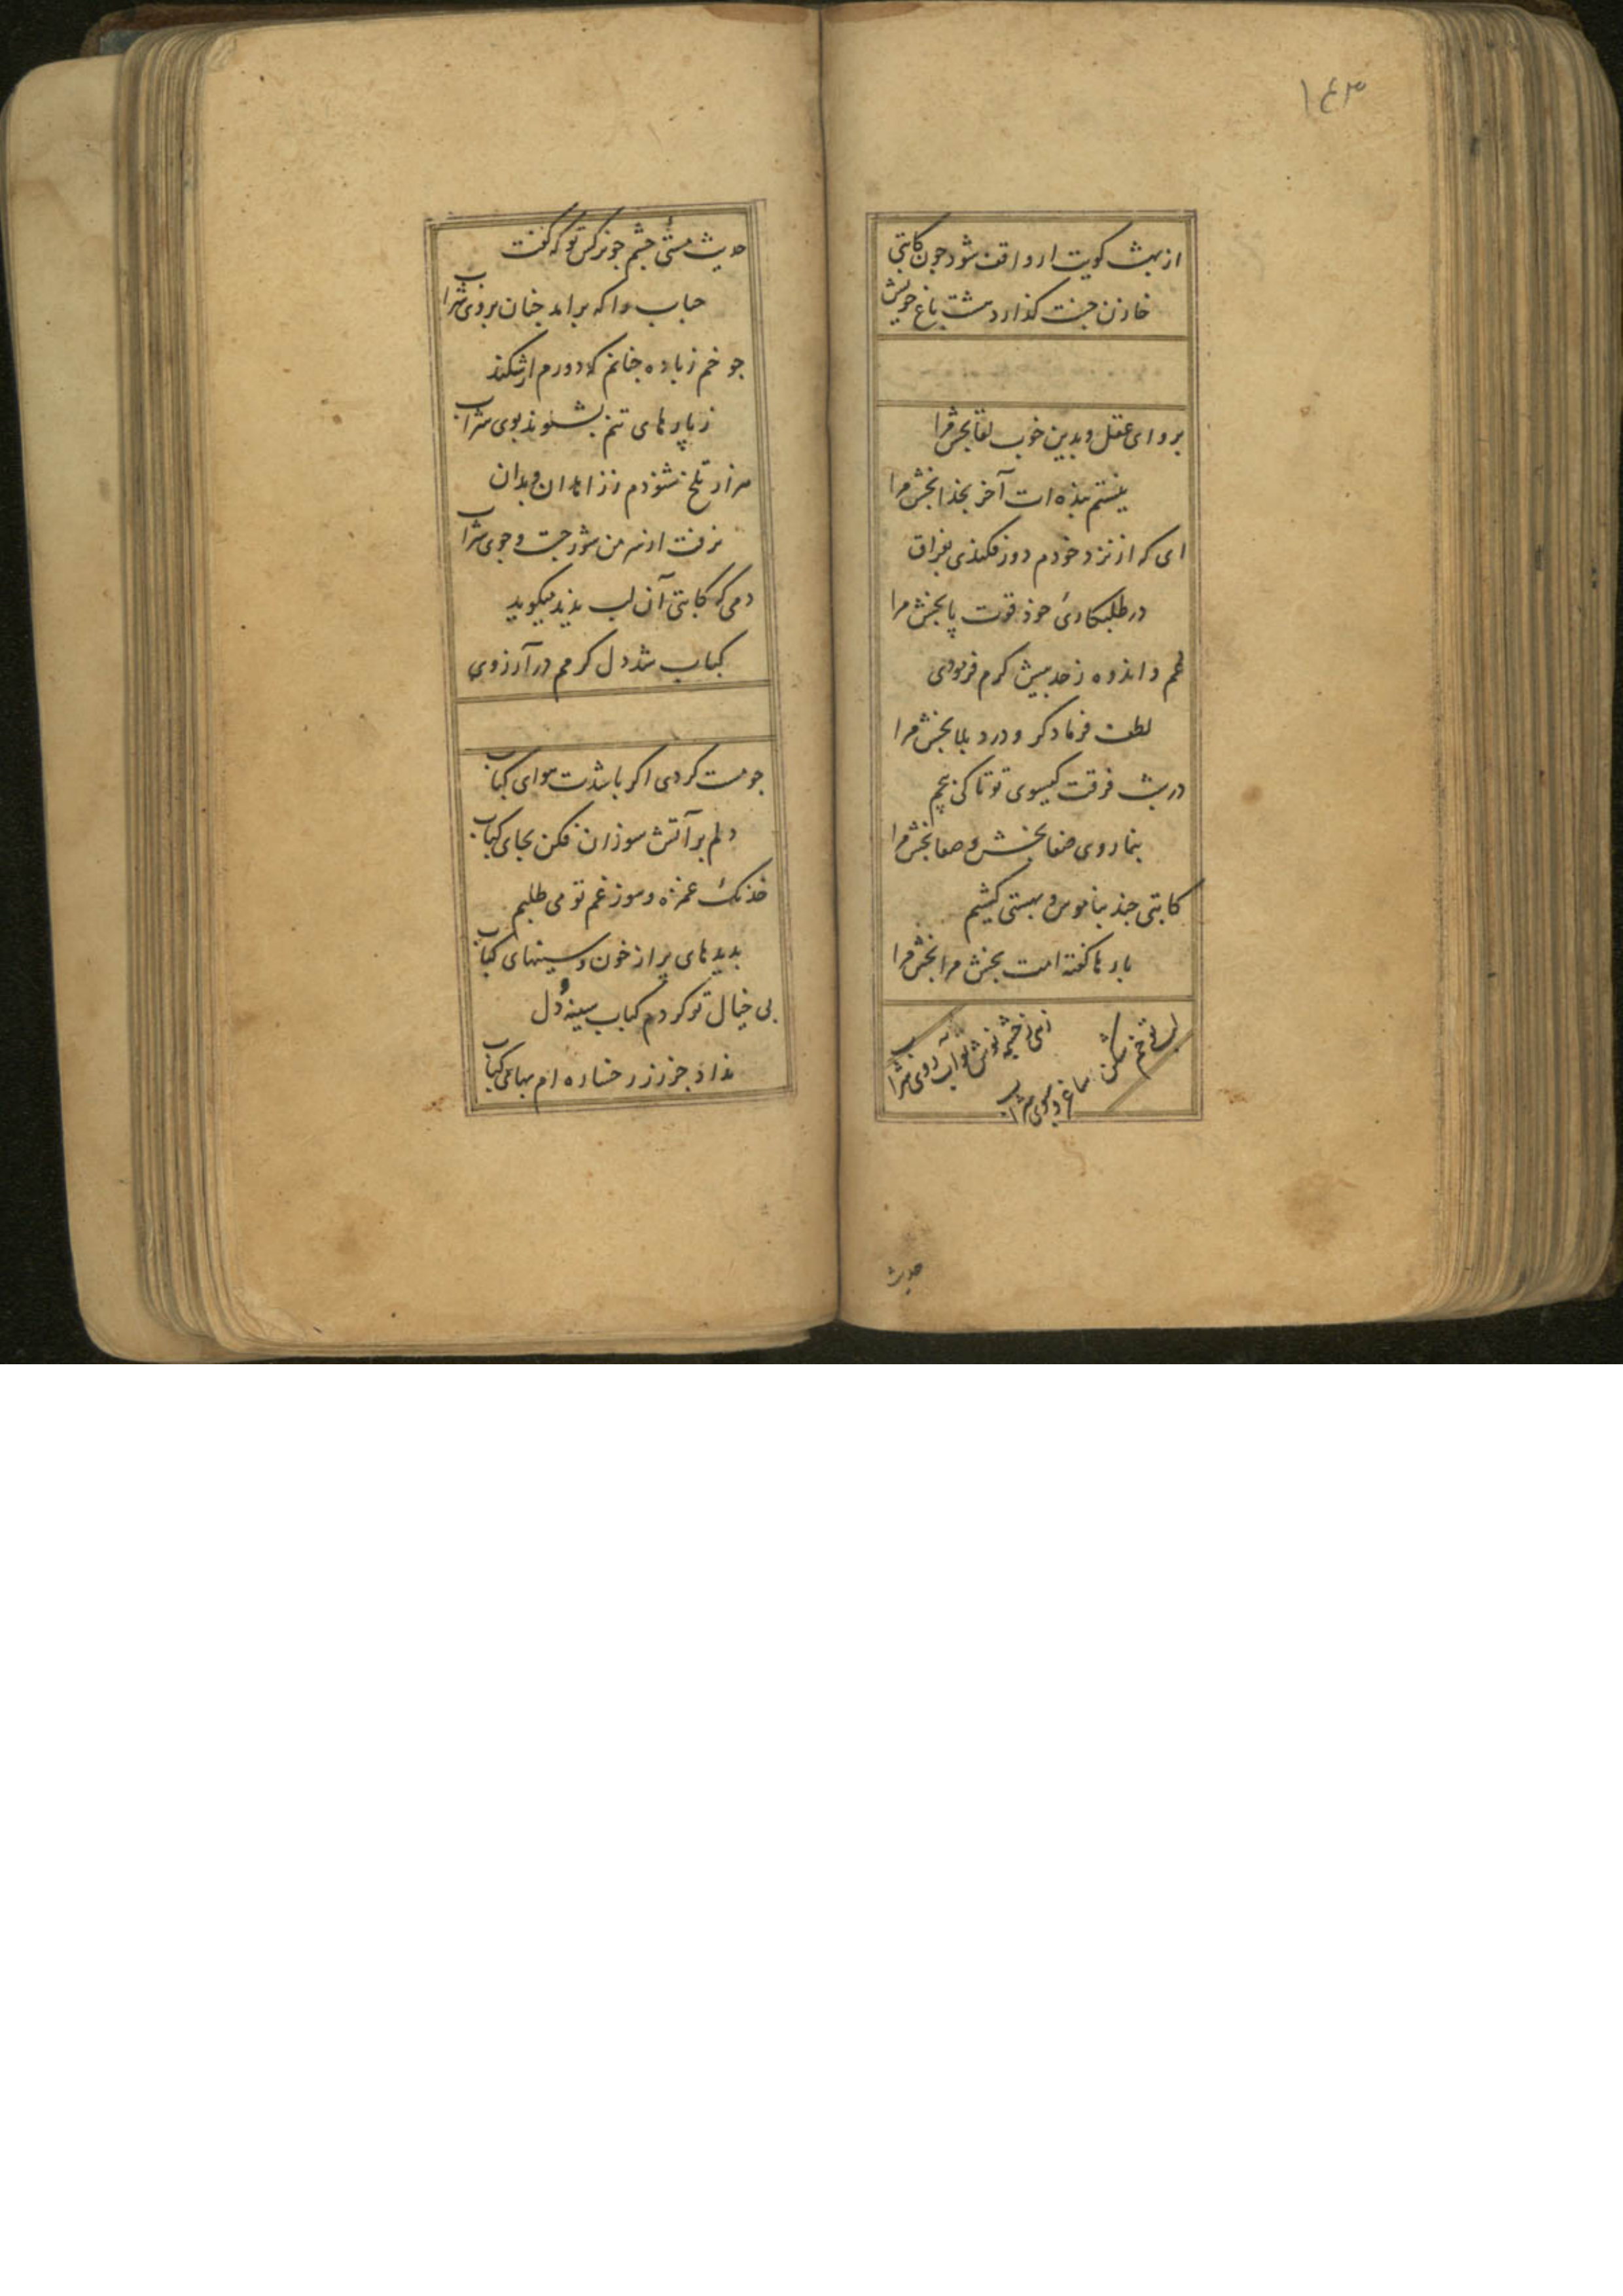 ۱۴۳
از بهشت کویت ار واقف شود چون کاتبی
خازن جنت گذارد مشت باغ خویش
برو ای عقل و بدین خوب لقا بخش مرا
نیستم بنده ات آخر بخدا بخش مرا
ای که از نزد خودم دور فکندی بفراق
در طلبکاری خود قوت پا بخش مرا
غم و اندوه ز حد بیش کرم فرمودی
لطف فرما دکر و درد بلا بخش مرا
در شب فرقت کیسوی تو تا کی پیچم
بنما روی صفا بخش و صفا بخش مرا
کاتبی چند بناموس و بهستی کشیم
بارها گفته امت بخش مرا بخش مرا
زهی ز چشمه نوش تو آب روی شراب
لب تو خم شکن ساغر و سبوی شراب
حدیث
حدیث مستی چشم جو نرکس تو که گفت
حباب وا که براید جنان بروی شراب
جو خم ز باده جنانم که دورم ار شکند
ز پارهای تنم بشنوند بوی شراب
هزار تلخ شنودم ززاهدان و بدان
نرفت از سر من شور جست و جوی شراب
دمی که کاتبی آن لب بدید میکوید
کباب شد دل کرمم در آرزوی
جو مست کردی اکر باشدت هوای کباب
دلم بر آتش سوزان فکن بجای کباب
خدنک غمزه و سوز غم تو می طلبم
بدیدهای پر از خون و سینهای کباب
بی خیال تو کردم کباب سینه و دل
نداد جز زر رخساره ام بهای کباب